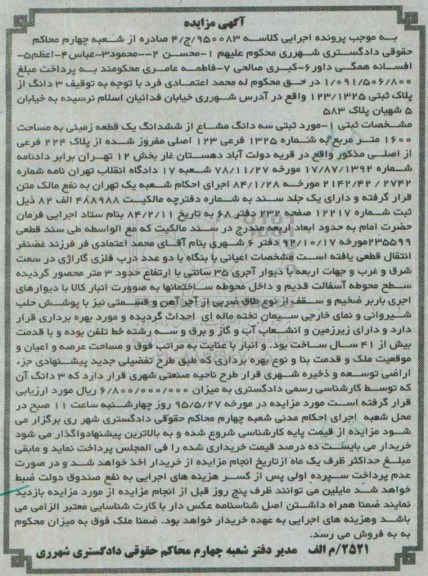 آگهی مزایده
به موجب پرونده اجرایی کلاسه ۹۵۰۰۸۳/ج/۴ صادره از شعبه چهارم محاکم
حقوقی دادگستری شهرری محکوم علیهم ۱-محسن ۲-محمود۳-عباس۴-اعظم۵-
افسانه همگی داور۶-کبری صالحی ۷-فاطمه عامری محکومند به پرداخت مبلغ
۱/۰۹۱/۵۰۶/۸۰۰ در حق محکوم له محمد اعتمادی فرد با توجه به توقیف ۳ دانگ از
پلاک ثبتی ۱۲۳/۱۳۲۵ واقع در آدرس شهرری خیابان فدائیان اسلام نرسیده به خیابان
۵ شهیان پلاک ۵۸۳
مشخصات ثبتی ۱-مورد ثبتی سه دانگ مشاع از ششدانگ یک قطعه زمینی به مساحت
۱۶۰۰ متر مربع به شماره ۱۳۲۵ فرعی ۱۲۳ اصلی مفروز شده از پلاک ۲۲۴ فرعی
از اصلی مذکور واقع در قریه دولت آباد دهستان غار بخش ۱۲ تهران برابر دادنامه
شماره ۱۷/۸۷/۱۳۹۲ مورخه ۷۸/۱۱/۲۷ شعبه ۱۷ دادگاه انقلاب تهران نامه شماره
۲۷۴۲ / ۲۱۴۲/۴۲ مورخه ۸۴/۱/۲۸ اجرای احکام شعبه یک تهران به نفع مالک متن
قرار گرفته و دارای یک جلد سند به شماره دفترچه مالکیت ۴۸۸۹۸۸ الف ۸۲ ذیل
ثبت شماره ۱۲۲۱۷ صفحه ۲۳۲ دفتر ۶۸ به تاریخ ۸۴/۲/۱۱ بنام ستاد اجرایی فرمان
حضرت امام به حدود ابعاد اربعه مندرج در سند مالکیت که مع الواسطه طی سند قطعی
۲۳۵۵۹۹مورخه ۹۲/۱۰/۱۷ دفتر ۶ شهرری بنام آقای محمد اعتمادی فر فرزند غضنفر
انتقال قطعی یافته است مشخصات اعیانی با بنگاه با دو عدد درب فلزی گاراژی در سمت
شرق و غرب و جهات اربعه با دیوار آجری ۳۵ سانتی با ارتفاع حدود ۳ متر محصور گردیده
سطح محوطه آسفالت قدیم و داخل محوطه ساختمانها به صورت انبار کالا با دیوارهای
اجری باربر ضخیم و سقف از نوع طاق ضربی از آجر آهن و قسمتی نیز با پوشش حلب
شیروانی و نمای خارجی سیمان تخته ماله ای احداث گردیده و مورد بهره برداری قرار
دارد و دارای زیرزمین و انشعاب آب و گاز و برق و سه رشته خط تلفن بوده و با قدمت
بیش از ۴۱ سال ساخت بود. و انبار با عنایت به مراتب فوق و مساحت عرصه و اعیان و
موقعیت ملک و قدمت بنا و نوع بهره برداری که طبق طرح تفضیلی جدید پیشنهادی جزء
اراضی توسعه و ذخیره شهری قرار طرح ناحیه صنعتی شهری قرار دارد که ۳ دانگ آن
که توسط کارشناسی رسمی دادگستری به میزان ۶/۸۰۰/۰۰۰/۰۰۰ ریال مورد ارزیابی
قرار گرفته است مورد مزایده در مورخه ۹۵/۵/۲۷ روز چهارشنبه ساعت ۱۱ صبح در
محل شعبه اجرای احکام مدنی شعبه چهارم محاکم حقوقی دادگستری شهر ری برگزار می
شود مزایده از قیمت پایه کارشناسی شروع شده و به بالاترین پیشنهادواگذار می شود
خریدار می بایست ده درصد قیمت خریداری شده را فی المجلس پرداخت نماید و مابقی
مبلغ حداکثر ظرف یک ماه ازتاریخ انجام مزایده از خریدار اخذ خواهد شد و در صورت
عدم پرداخت سپرده اولی پس از کسر هزینه های اجرایی به نفع صندوق دولت ضبط
خواهد شد مایلین می توانند ظرف پنج روز قبل از انجام مزایده از مورد مزایده بازدید
نمایند ضمنا همراه داشتن اصل شناسنامه عکس دار یا کارت شناسایی معتبر الزامی می
باشد وهزینه های اجرایی به عهده خریدار خواهد بود. ضمنا ملک فوق به میزان محکوم
به به فروش می رسد.
۲۵۲۱/م الف مدیر دفتر شعبه چهارم محاکم حقوقی دادگستری شهرری